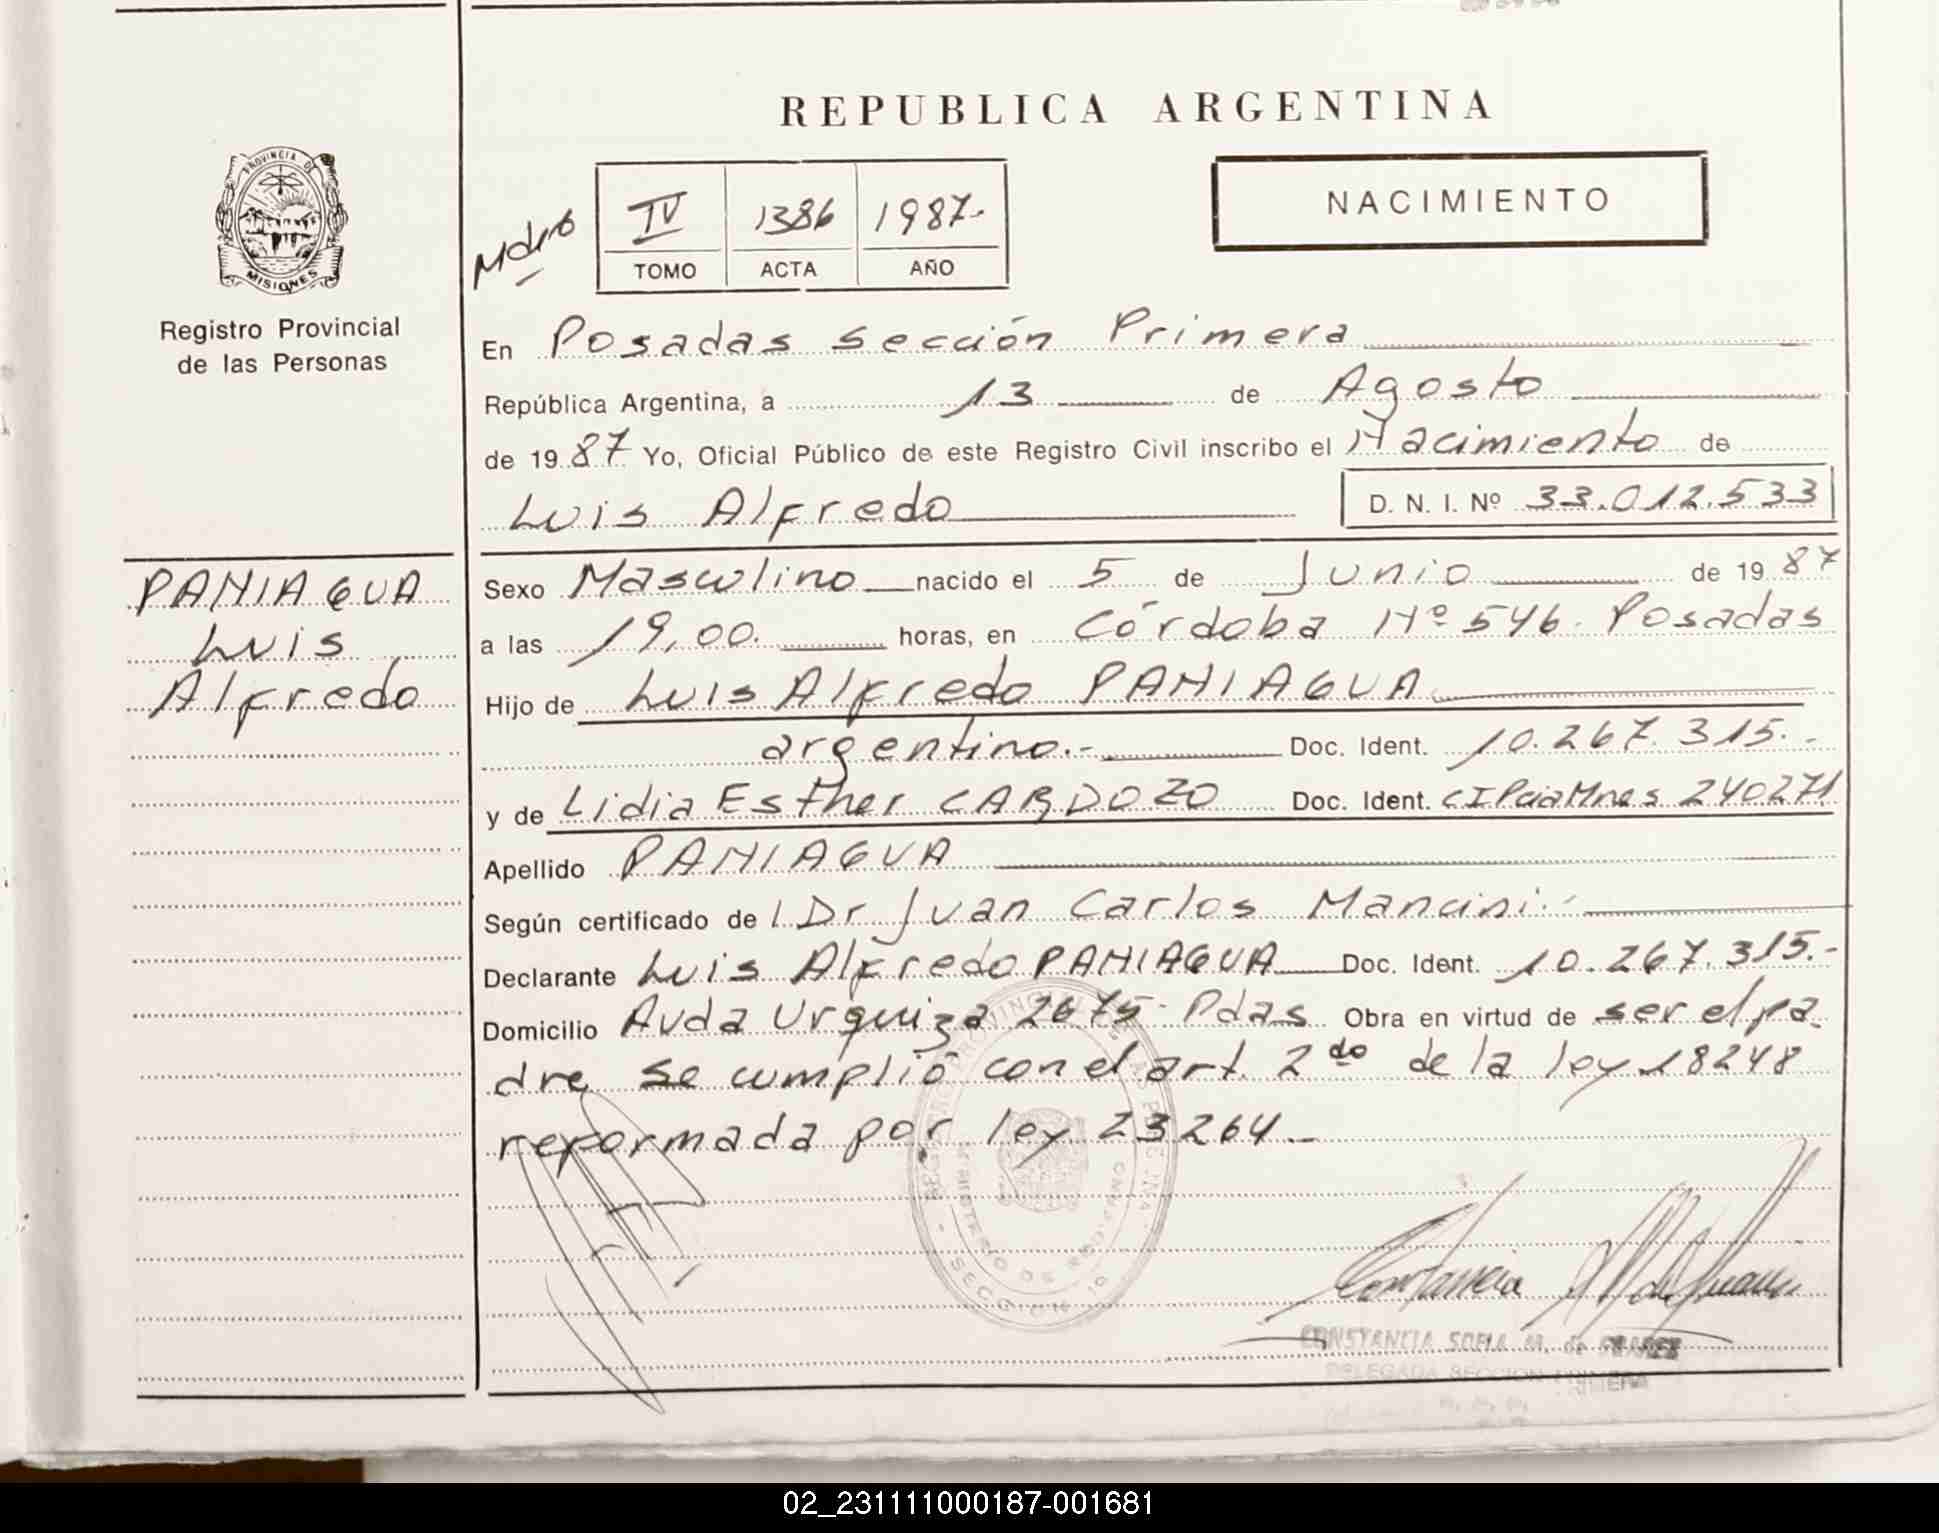 REPUBLICA ARGENTINA
PROVINCIA DE
MISIONES
Registro Provincial
de las Personas
NACIMIENTO
IV 1386 1987.-
TOMO ACTA AÑO
En Posadas Sección Primera
República Argentina, a 13 de Agosto
de 1987 Yo, Oficial Público de este Registro Civil inscribo el Nacimiento de
Luis Alfredo D. N. I. Nº 33.012.533
PANIAGUA
Luis
Alfredo
Sexo Masculino nacido el 5 de Junio de 1987
a las 19,00. horas, en Córdoba Nº 546. Posadas
Hijo de Luis Alfredo PANIAGUA
argentino.- Doc. Ident. 10.267.315.-
y de Lidia Esther CARDOZO Doc. Ident. CIPciaMnes 240271
Apellido PANIAGUA
Según certificado de Dr Juan Carlos Mancini.-
Declarante Luis Alfredo PANIAGUA Doc. Ident. 10.267.315.-
Domicilio Avda Urquiza 2675- Pdas Obra en virtud de ser el pa
dre, se cumplió con el art. 2do de la ley 18248
reformada por ley 23264.-
CONSTANCIA SOFIA M. de
DELEGADA SECCION PRIMERA
02_231111000187-001681